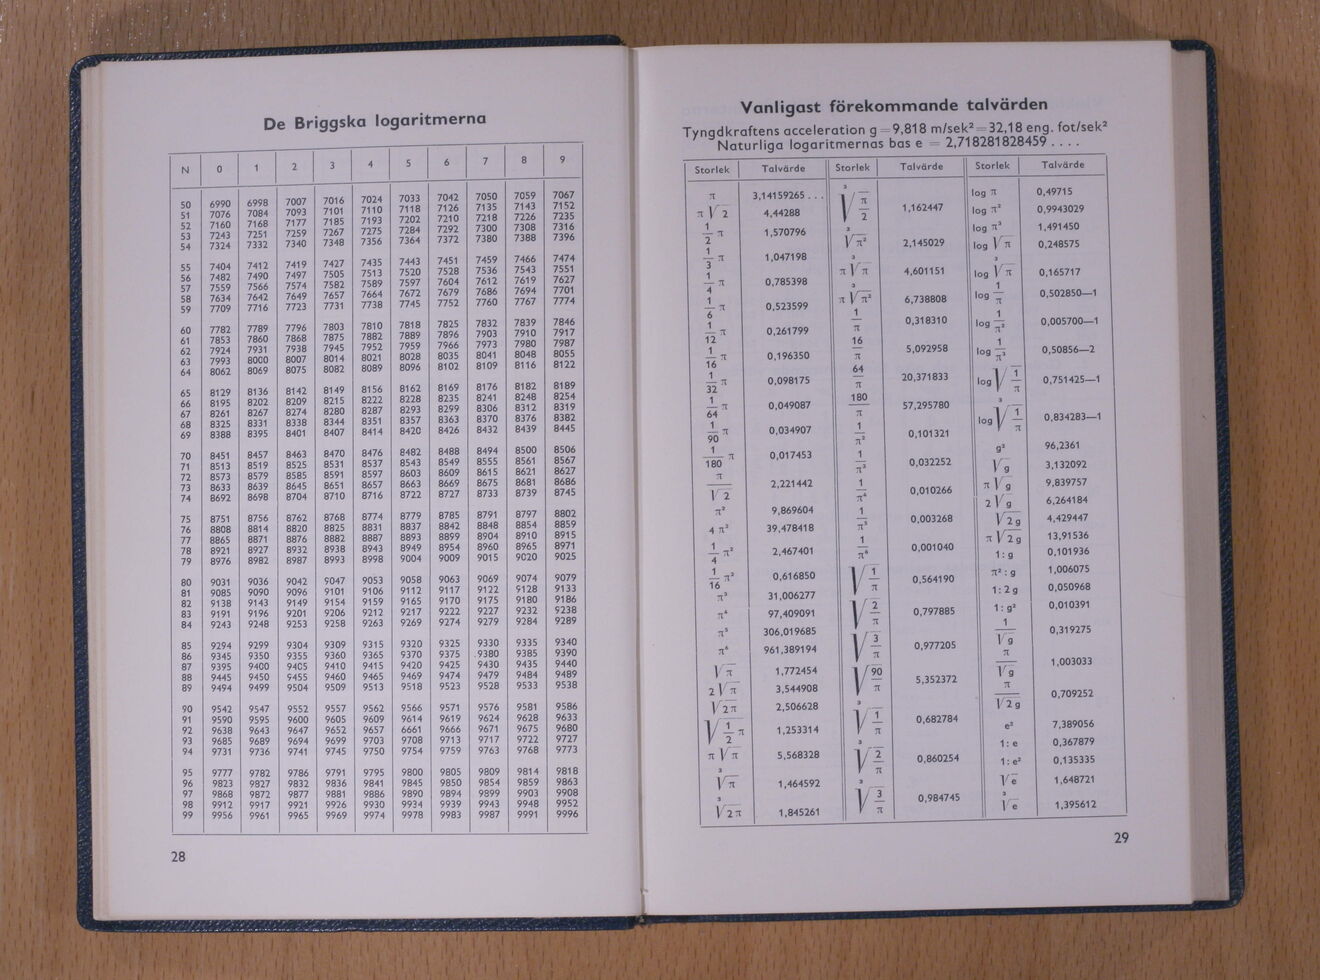 De Briggska logaritmerna
N 0 1 2 3 4 5 6 7 8 9
50 6990 6998 7007 7016 7024 7033 7042 7050 7059 7067
51 7076 7084 7093 7101 7110 7118 7126 7135 7143 7152
52 7160 7168 7177 7185 7193 7202 7210 7218 7226 7235
53 7243 7251 7259 7267 7275 7284 7292 7300 7308 7316
54 7324 7332 7340 7348 7356 7364 7372 7380 7388 7396
55 7404 7412 7419 7427 7435 7443 7451 7459 7466 7474
56 7482 7490 7497 7505 7513 7520 7528 7536 7543 7551
57 7559 7566 7574 7582 7589 7597 7604 7612 7619 7627
58 7634 7642 7649 7657 7664 7672 7679 7686 7694 7701
59 7709 7716 7723 7731 7738 7745 7752 7760 7767 7774
60 7782 7789 7796 7803 7810 7818 7825 7832 7839 7846
61 7853 7860 7868 7875 7882 7889 7896 7903 7910 7917
62 7924 7931 7938 7945 7952 7959 7966 7973 7980 7987
63 7993 8000 8007 8014 8021 8028 8035 8041 8048 8055
64 8062 8069 8075 8082 8089 8096 8102 8109 8116 8122
65 8129 8136 8142 8149 8156 8162 8169 8176 8182 8189
66 8195 8202 8209 8215 8222 8228 8235 8241 8248 8254
67 8261 8267 8274 8280 8287 8293 8299 8306 8312 8319
68 8325 8331 8338 8344 8351 8357 8363 8370 8376 8382
69 8388 8395 8401 8407 8414 8420 8426 8432 8439 8445
70 8451 8457 8463 8470 8476 8482 8488 8494 8500 8506
71 8513 8519 8525 8531 8537 8543 8549 8555 8561 8567
72 8573 8579 8585 8591 8597 8603 8609 8615 8621 8627
73 8633 8639 8645 8651 8657 8663 8669 8675 8681 8686
74 8692 8698 8704 8710 8716 8722 8727 8733 8739 8745
75 8751 8756 8762 8768 8774 8779 8785 8791 8797 8802
76 8808 8814 8820 8825 8831 8837 8842 8848 8854 8859
77 8865 8871 8876 8882 8887 8893 8899 8904 8910 8915
78 8921 8927 8932 8938 8943 8949 8954 8960 8965 8971
79 8976 8982 8987 8993 8998 9004 9009 9015 9020 9025
80 9031 9036 9042 9047 9053 9058 9063 9069 9074 9079
81 9085 9090 9096 9101 9106 9112 9117 9122 9128 9133
82 9138 9143 9149 9154 9159 9165 9170 9175 9180 9186
83 9191 9196 9201 9206 9212 9217 9222 9227 9232 9238
84 9243 9248 9253 9258 9263 9269 9274 9279 9284 9289
85 9294 9299 9304 9309 9315 9320 9325 9330 9335 9340
86 9345 9350 9355 9360 9365 9370 9375 9380 9385 9390
87 9395 9400 9405 9410 9415 9420 9425 9430 9435 9440
88 9445 9450 9455 9460 9465 9469 9474 9479 9484 9489
89 9494 9499 9504 9509 9513 9518 9523 9528 9533 9538
90 9542 9547 9552 9557 9562 9566 9571 9576 9581 9586
91 9590 9595 9600 9605 9609 9614 9619 9624 9628 9633
92 9638 9643 9647 9652 9657 9661 9666 9671 9675 9680
93 9685 9689 9694 9699 9703 9708 9713 9717 9722 9727
94 9731 9736 9741 9745 9750 9754 9759 9763 9768 9773
95 9777 9782 9786 9791 9795 9800 9805 9809 9814 9818
96 9823 9827 9832 9836 9841 9845 9850 9854 9859 9863
97 9868 9872 9877 9881 9886 9890 9894 9899 9903 9908
98 9912 9917 9921 9926 9930 9934 9939 9943 9948 9952
99 9956 9961 9965 9969 9974 9978 9983 9987 9991 9996
28
Vanligast förekommande talvärden
Tyngdkraftens acceleration g = 9,818 m/sek² = 32,18 eng. fot/sek²
Naturliga logaritmernas bas e = 2,718281828459 . . . .
Storlek Talvärde Storlek Talvärde Storlek Talvärde
π 3,14159265 . . .
π √2 4,44288
1/2 π 1,570796
1/3 π 1,047198
1/4 π 0,785398
1/6 π 0,523599
1/12 π 0,261799
1/16 π 0,196350
1/32 π 0,098175
1/64 π 0,049087
1/90 π 0,034907
1/180 π 0,017453
π/√2 2,221442
π² 9,869604
4 π² 39,478418
1/4 π² 2,467401
1/16 π² 0,616850
π³ 31,006277
π⁴ 97,409091
π⁵ 306,019685
π⁶ 961,389194
√π 1,772454
2 √π 3,544908
√2π 2,506628
√1/2 π 1,253314
π √π 5,568328
³√π 1,464592
³√2π 1,845261
³√π/2 1,162447
³√π² 2,145029
π ³√π 4,601151
π ³√π² 6,738808
1/π 0,318310
16/π 5,092958
64/π 20,371833
180/π 57,295780
1/π² 0,101321
1/π³ 0,032252
1/π⁴ 0,010266
1/π⁵ 0,003268
1/π⁶ 0,001040
√1/π 0,564190
√2/π 0,797885
√3/π 0,977205
√90/π 5,352372
³√1/π 0,682784
³√2/π 0,860254
³√3/π 0,984745
log π 0,49715
log π² 0,9943029
log π³ 1,491450
log √π 0,248575
log ³√π 0,165717
log 1/π 0,502850—1
log 1/π² 0,005700—1
log 1/π³ 0,50856—2
log √1/π 0,751425—1
log ³√1/π 0,834283—1
g² 96,2361
√g 3,132092
π √g 9,839757
2 √g 6,264184
√2g 4,429447
π √2g 13,91536
1 : g 0,101936
π² : g 1,006075
1 : 2 g 0,050968
1 : g² 0,010391
1/√g 0,319275
π/√g 1,003033
π/√2g 0,709252
e² 7,389056
1 : e 0,367879
1 : e² 0,135335
√e 1,648721
³√e 1,395612
29